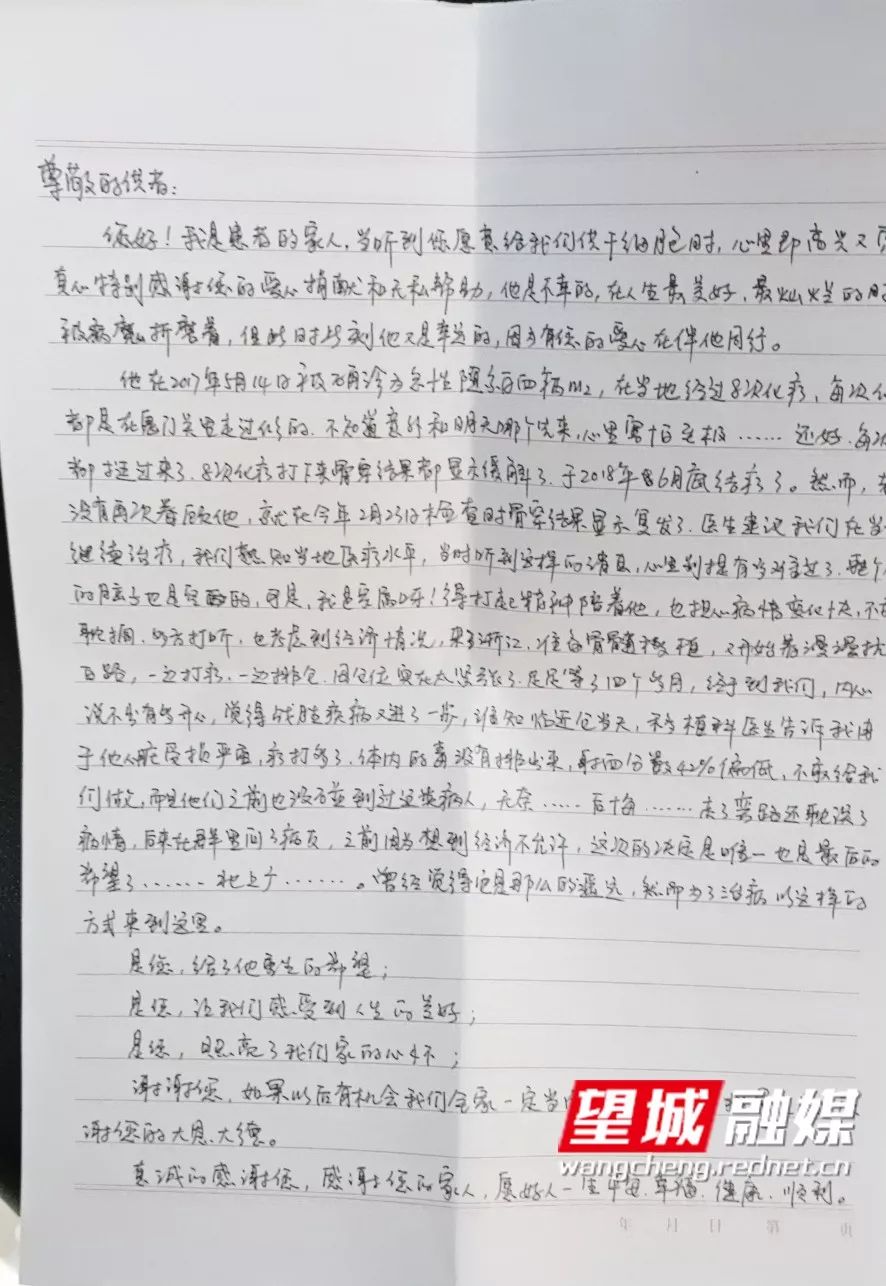 尊敬的供者：
您好！我是患者的家人，当听到你愿意给我们供干细胞时，心里即高兴又
真心特别感谢您的爱心捐献和无私帮助，他是不幸的，在人生最美好、最灿烂的时
被病魔折磨着，但此时此刻他又是幸运的，因为有您的爱心在伴他同行。
他在2017年5月14日被确诊为急性髓系白血病m2，在当地经过8次化疗，每次化
都是在鬼门关里走过似的，不知道意外和明天哪个先来，心里害怕至极……还好，每次
都挺过来了，8次化疗打下来骨穿结果都显示缓解了，于2018年6月底结疗了。然而，
没有再次眷顾他，就在今年2月23日检查时骨穿结果显示复发了，医生建议我们在当
继续治疗，我们熟知当地医疗水平，当时听到这样的消息，心里别提有多难过了，整个
的脑子也是空白的，可是，我是家属呀！得打起精神陪着他，也担心病情变化快，不敢
耽搁，多方打听，也考虑到经济情况，来了浙江，准备骨髓移植，又开始着漫漫抗
白路，一边打疗，一边排仓，因仓位实在太紧张了，足足等了四个多月，终于到我们，内心
说不出有多开心，觉得战胜疾病又进了一步，谁知临近仓当天，移植科医生告诉我由
于他心脏受损严重，疗打多了，体内的毒没有排出来，射血分数42%偏低，不敢给我
们做，而且他们之前也没有碰到过这类病人，无奈……后悔……走了弯路还耽误了
病情，后来在群里问了病友，之前因为想到经济不允许，这次的决定是唯一也是最后的
希望了……北上广……。曾经觉得它是那么的遥远，然却为了治病以这样的
方式来到这里。
是您，给了他重生的希望；
是您，让我们感受到人生的美好；
是您，照亮了我们家的心怀；
谢谢您，如果以后有机会我们全家一定当
谢您的大恩大德。
真诚的感谢您，感谢您的家人，愿好人一生平安、幸福、健康、顺利。
望城融媒
wangcheng.rednet.cn
年 月 日 第 页